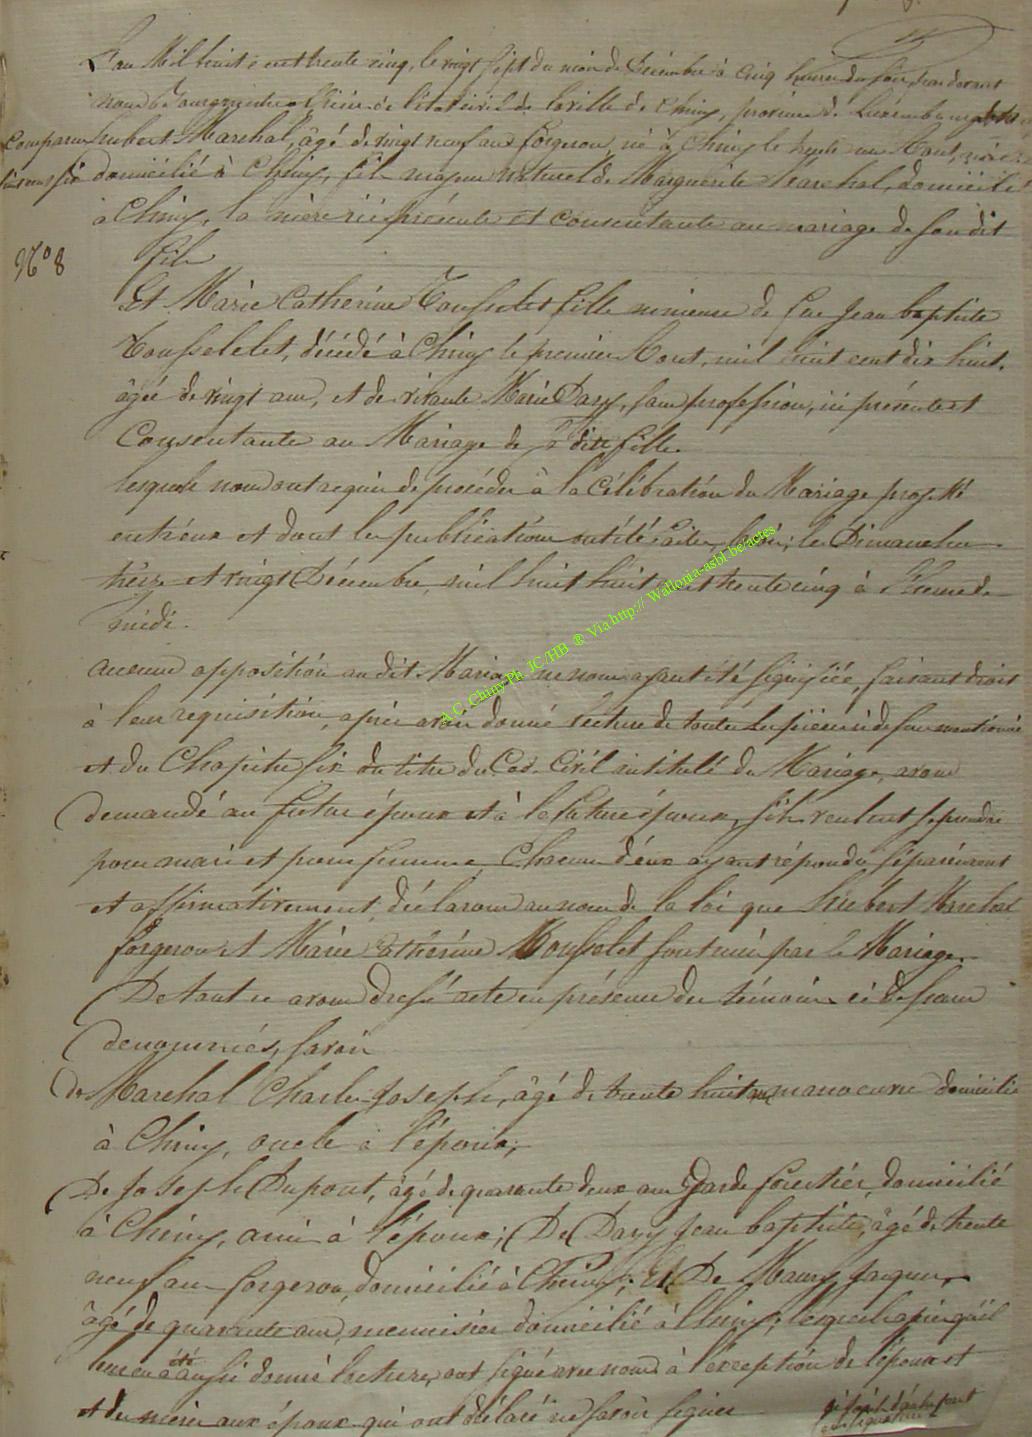 L'an Mil huit cent trente cinq, le vingt sept du mois de Décembre à cinq heures du soir, par devant
nous Bourgmestre officier de l'état civil de la ville de Chiny, province de Luxembourg
comparu hubert Marchal, âgé de vingt neuf ans forgeron, né à Chiny le trente un Aout,
domicilié à Chiny, fils majeur naturel de Marguerite Marchal, domicilié
à Chiny, la mère ici présente et consentante au mariage de son dit
fils
N° 8
Et Marie Catherine Tousselet fille mineure de feu Jean baptiste
Tousselelet, décédé à Chiny le premier Aout, mil huit cent dix huit,
âgée de vingt ans, et de vivante Marie Davy, sans profession, ici présente et
Consentante au Mariage de sa dite fille.
lesquels nous ont requis de procéder à la Célébration du Mariage projetté
entr'eux et dont les publications ont été faites, les Dimanches
treize et vingt Décembre, mil huit huit cent trente cinq à l'heure de
midi.
aucune opposition au dit Mariage ne nous ayant été signifiée, faisant droit
à leur requisition, après avoir donné lecture de toutes les pièces ci dessus mentionnés
et du Chapitre six du titre du Code Civil intitulé du Mariage, avons
demandé au futur époux et à la future épouse, s'ils veulent se prendre
pour mari et pour femme, Chacun d'eux ayant répondu séparément
et affirmativement, déclarons au nom de la loi que hubert Marchal
forgeron et Marie Catherine Tousselet sont unis par le Mariage.
De tout ce avons dressé acte en présence des témoins ci dessous
denommés, savoir
De Marchal Charles Joseph, âgé de trente huit ans manoeuvre domicilié
à Chiny, oncle à l'époux;
De Joseph Dupont, âgé de quarante deux ans Garde forestier, domicilié
à Chiny, ami à l'époux; De Davy Jean baptiste, âgé de trente
neuf ans forgeron, domicilié à Chiny; Et De Maury Jacques,
âgé de quarante ans, menuisier domicilié à Chiny; lesquels après qu'il
leur en a été aussi donné lecture, ont signé avec nous à l'exception de l'époux et
et des mères aux époux qui ont déclaré ne savoir signer
A.C. Chiny Ph. JC/HB ® Via http:// Wallonia-asbl.be/actes